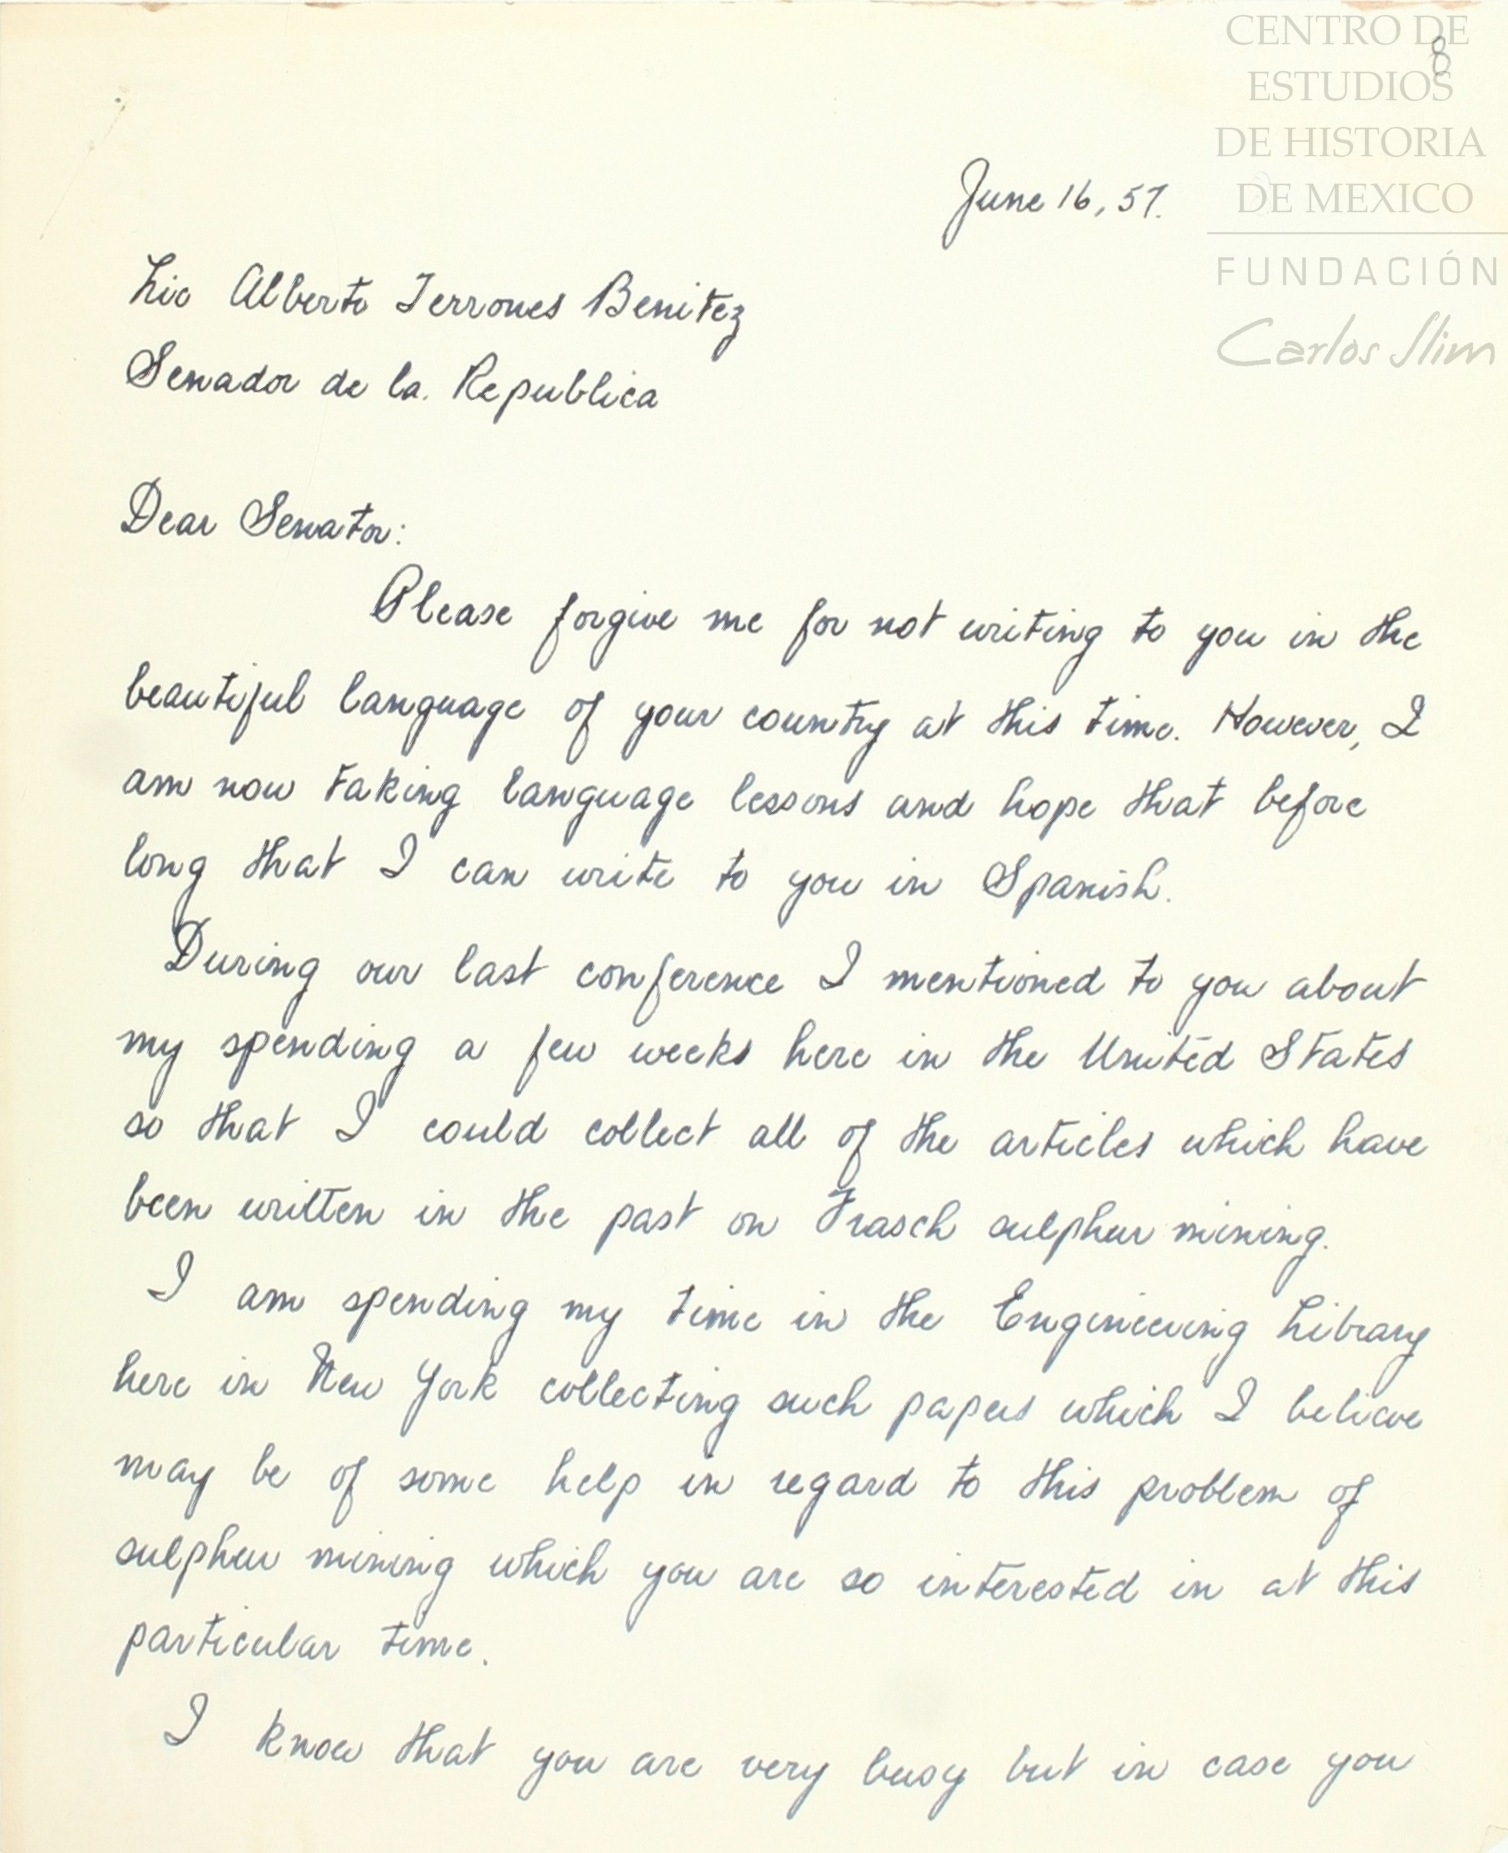 CENTRO DE
ESTUDIOS
DE HISTORIA
DE MEXICO
FUNDACIÓN
Carlos Slim
8
June 16, 57.
Lic Alberto Terrones Benitez
Senador de la. Republica
Dear Senator:
Please forgive me for not writing to you in the
beautiful language of your country at this time. However, I
am now taking language lessons and hope that before
long that I can write to you in Spanish.
During our last conference I mentioned to you about
my spending a few weeks here in the United States
so that I could collect all of the articles which have
been written in the past on Frasch sulphur mining.
I am spending my time in the Engineering Library
here in New York collecting such papers which I believe
may be of some help in regard to this problem of
sulphur mining which you are so interested in at this
particular time.
I know that you are very busy but in case you